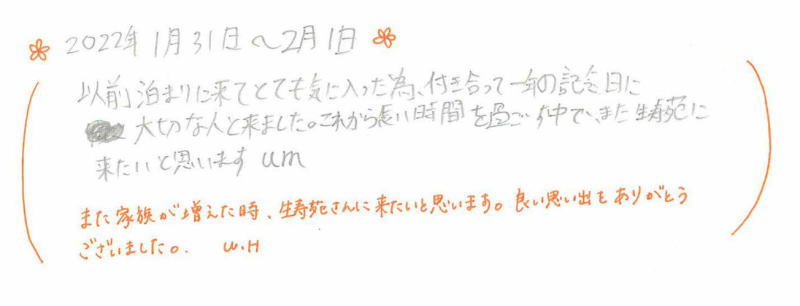 2022年1月31日～2月1日
以前泊まりに来てとても気に入った為、付き合って一年の記念日に
大切な人と来ました。これから長い時間を過ごす中で、また生寿苑に
来たいと思います um
また家族が増えた時、生寿苑さんに来たいと思います。良い思い出をありがとう
ございました。 W.H